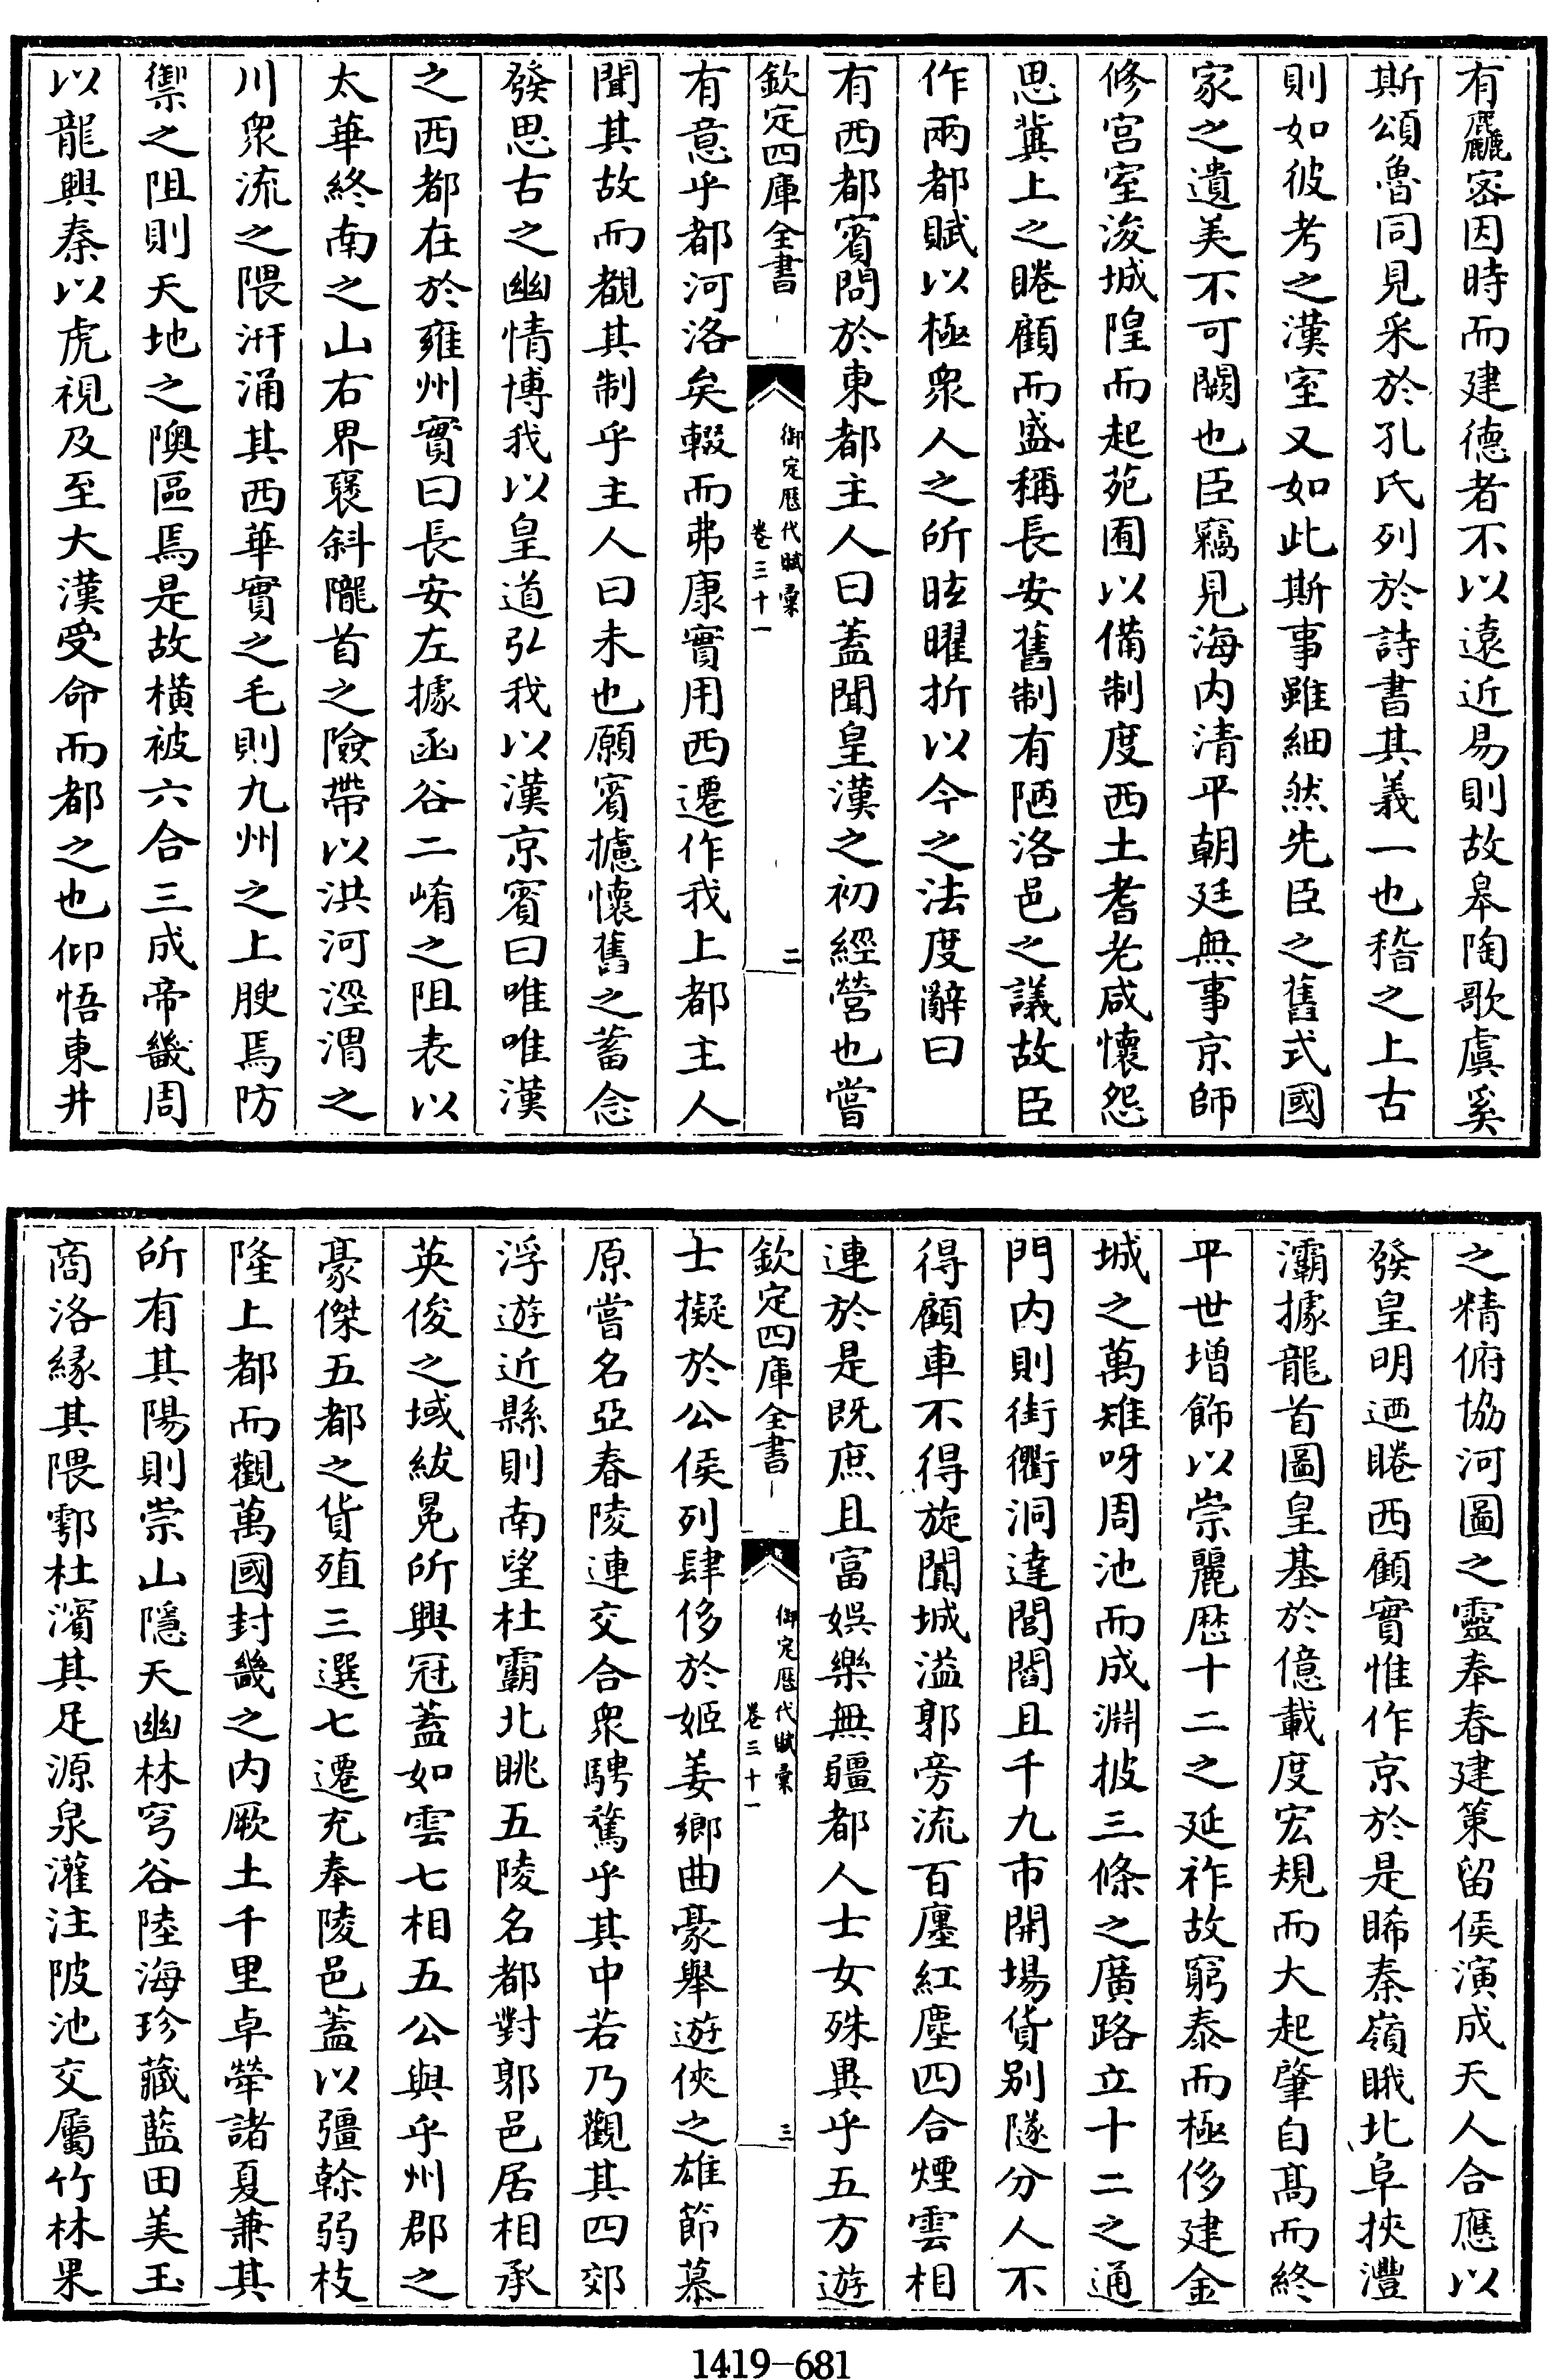 有麤密因時而建德者不以遠近易則故皋陶歌虞奚
斯頌魯同見采於孔氏列於詩書其義一也稽之上古
則如彼考之漢室又如此斯事雖細然先臣之舊式國
家之遺美不可闕也臣竊見海内清平朝廷無事京師
修宫室浚城隍而起苑囿以備制度西土耆老咸懷怨
思冀上之睠顧而盛稱長安舊制有陋洛邑之議故臣
作兩都賦以極衆人之所眩曜折以今之法度辭曰
有西都賓問於東都主人曰蓋聞皇漢之初經營也嘗
欽定四庫全書
御定歴代賦彙
卷三十一
二
有意乎都河洛矣輟而弗康實用西遷作我上都主人
聞其故而覩其制乎主人曰未也願賓攄懷舊之蓄念
發思古之幽情博我以皇道弘我以漢京賓曰唯唯漢
之西都在於雍州實曰長安左據函谷二崤之阻表以
太華終南之山右界襃斜隴首之險帶以洪河涇渭之
川衆流之隈汧涌其西華實之毛則九州之上腴焉防
禦之阻則天地之隩區焉是故橫被六合三成帝畿周
以龍興秦以虎視及至大漢受命而都之也仰悟東井
之精俯協河圖之靈奉春建策留侯演成天人合應以
發皇明迺睠西顧實惟作京於是睎秦嶺睋北阜挾灃
灞據龍首圖皇基於億載度宏規而大起肇自高而終
平世增飾以崇麗歴十二之延祚故窮泰而極侈建金
城之萬雉呀周池而成淵披三條之廣路立十二之通
門内則街衢洞達閭閻且千九市開場貨别隧分人不
得顧車不得旋闐城溢郭旁流百廛紅塵四合煙雲相
連於是既庶且富娯樂無疆都人士女殊異乎五方遊
欽定四庫全書
御定歴代賦彙
卷三十一
三
士擬於公侯列肆侈於姬姜鄉曲豪舉遊俠之雄節慕
原嘗名亞春陵連交合衆騁騖乎其中若乃觀其四郊
浮遊近縣則南望杜霸北眺五陵名都對郭邑居相承
英俊之域紱冕所興冠蓋如雲七相五公與乎州郡之
豪傑五都之貨殖三選七遷充奉陵邑蓋以彊幹弱枝
隆上都而觀萬國封畿之内厥土千里卓犖諸夏兼其
所有其陽則崇山隱天幽林穹谷陸海珍藏藍田美玉
商洛緣其隈鄠杜濱其足源泉灌注陂池交屬竹林果
1419-681